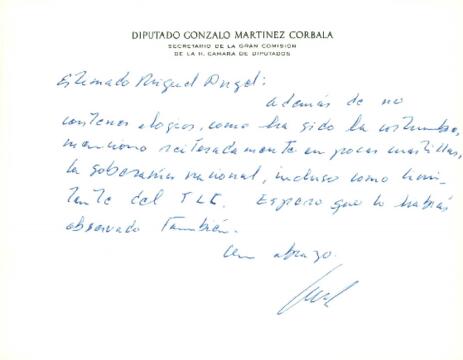 DIPUTADO GONZALO MARTINEZ CORBALA
SECRETARIO DE LA GRAN COMISIÓN
DE LA H. CAMARA DE DIPUTADOS
Estimado Miguel Angel:
además de no
contener elogios, como ha sido la costumbre,
menciono reiteradamente en pocas cuartillas,
la soberanía nacional, incluso como limi-
tante del TLC. Espero que lo habrás
observado también.
Un abrazo.